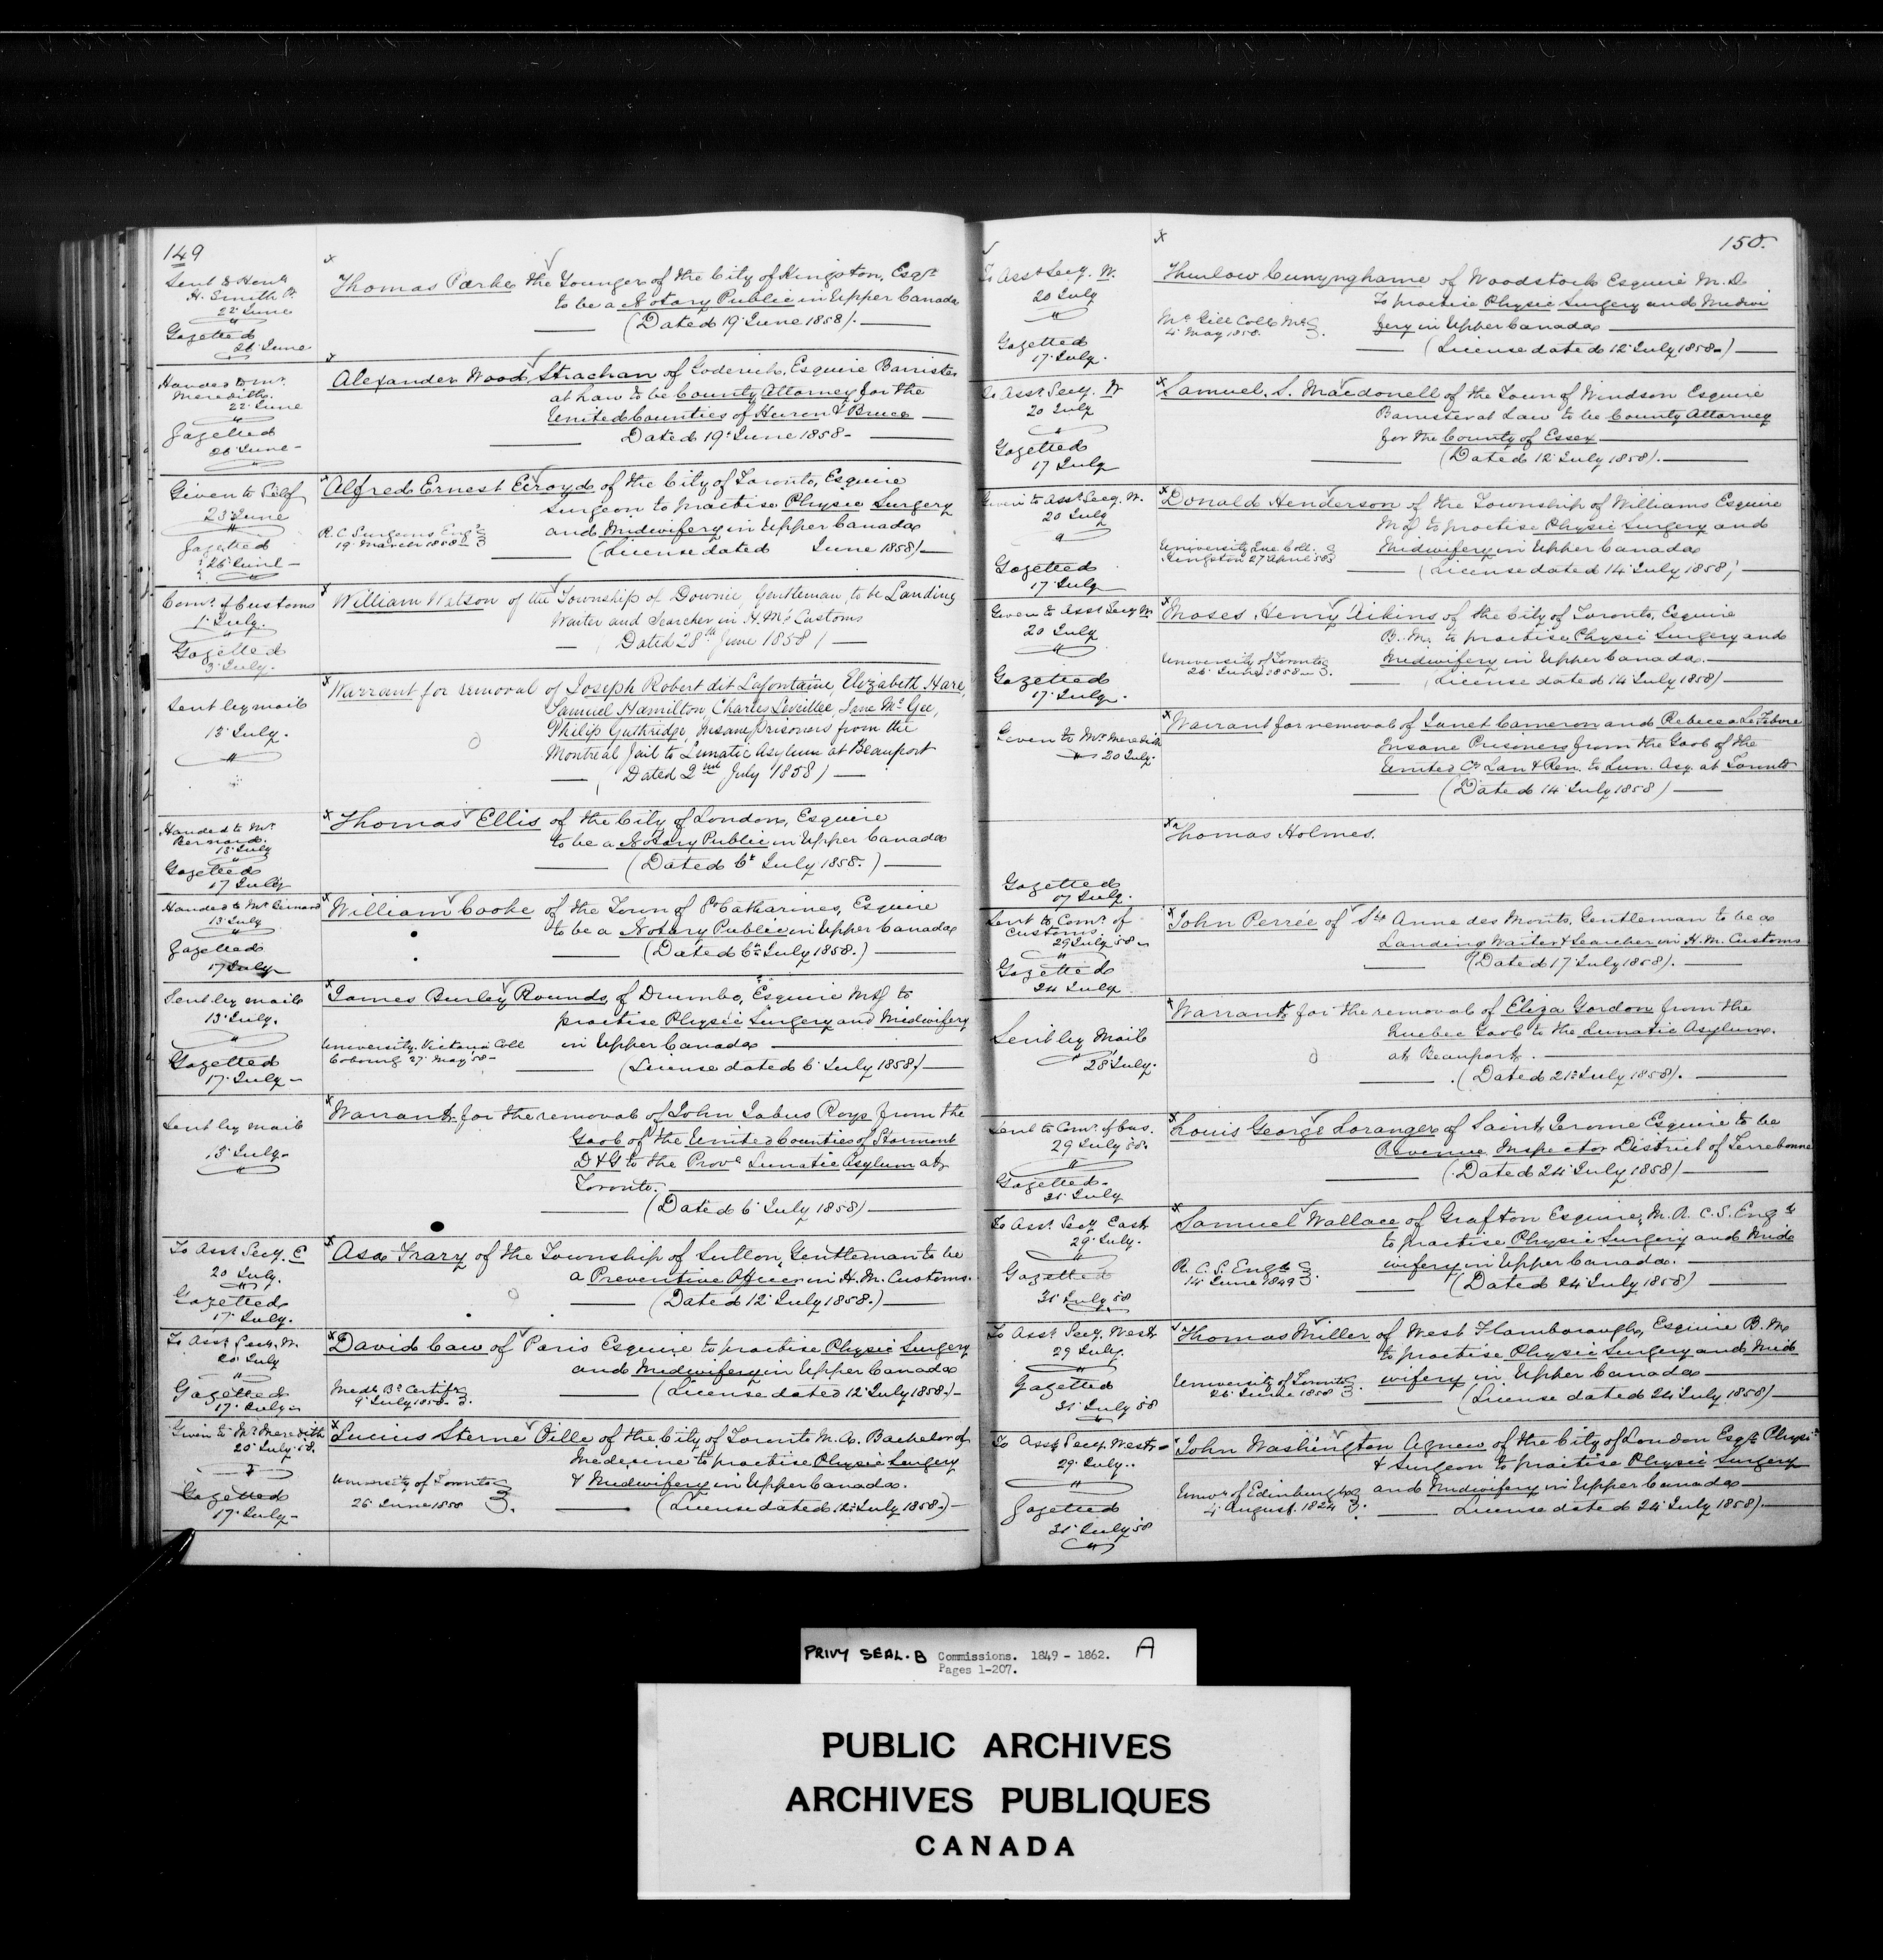 149
Sent to Honb
H. Smith
22 June
Gazetted
26 June
Thomas Parke the Younger of the City of Kingston, Esqr
to be a Notary Public in Upper Canada
(Dated 19 June 1858).
Handed to Mr
Meredith.
22 June
Gazetted
26 June
Alexander Wood Strachan of Goderich, Esquire Barrister
at Law to be County Attorney for the
United Counties of Huron & Bruce
Dated 19 June 1858
Given to Self
23 June
Gazetted
26 June
Alfred Ernest Ecroyd of the City of Toronto, Esquire
Surgeon to practise Physic Surgery
R. C. Surgeons Engd
19 March 1858
and Midwifery in Upper Canada
(License dated June 1858)
Comr of Customs
1 July.
Gazetted
3 July.
William Watson of the Township of Downie Gentleman, to be Landing
Waiter and Searcher in H. M. Customs
Dated 28th June 1858)
Sent by mail
13 July.
Warrant for removal of Joseph Robert dit Lafontaine, Elizabeth Hare,
Samuel Hamilton, Charles Leveillee, Jane Mc Gee,
Philip Guthridge, Insane prisoners from the
Montreal Jail to Lunatic Asylum at Beauport
(Dated 2nd July 1858)
Handed to Mr
Bernard.
13 July
Gazetted
17 July
Thomas Ellis of the City of London, Esquire
to be a Notary Public in Upper Canada
(Dated 6th July 1858.)
Handed to Mr Bernard
13 July
Gazetted
17 July
William Cooke of the Town of St Catharines, Esquire
to be a Notary Public in Upper Canada
(Dated 6th July 1858.)
Sent by mail
13 July.
Gazetted
17 July
James Burley Rounds of Drumbo, Esquire MD to
practise Physic Surgery and Midwifery
University Victoria Coll
Cobourg 27 May 58
in Upper Canada
(License dated 6 July 1858)
Sent by mail
13 July
Warrant for the removal of John Jabus Roys from the
Gaol of the United Counties of Stormont
D & G to the Provl Lunatic Asylum at
Toronto.
(Dated 6 July 1858)
To Asst Secy. E
20 July.
Gazetted
17 July.
Asa Frary of the Township of Sutton, Gentleman to be
a Preventive Officer in H. M. Customs.
(Dated 12 July 1858.)
To Asst Secy. W.
20 July
Gazetted
17 July
David Caw of Paris Esquire to practise Physic Surgery
and Midwifery in Upper Canada
Medl Bd Certifs
9 July 1858.
(License dated 12 July 1858.)
Given to Mr Meredith
20 July 58.
Gazetted
17 July
Lucius Sterne Oille of the City of Toronto M. A. Bachelor of
Medicine to practise Physic Surgery
University of Toronto
26 June 1858
& Midwifery in Upper Canada.
(License dated 12 July 1858.)
150.
To Asst Secy. W.
20 July
Gazetted
17 July.
Thurlow Cunynghame of Woodstock Esquire M. D
To practise Physic Surgery and Midwi
Mc Gill Coll Ml
4 May 1858.
fery in Upper Canada
(License dated 12 July 1858)
To Asst Secy. W
20 July
Gazetted
17 July
Samuel. S. Macdonell of the Town of Windsor Esquire
Barrister at Law to be County Attorney
for the County of Essex
(Dated 12 July 1858).
Given to Asst Secy. W.
20 July
Gazetted
17 July
Donald Henderson of the Township of Williams Esquire
M D to practise Physic Surgery and
University Que. Coll.
Kingston 27 April 58
Midwifery in Upper Canada
(License dated 14 July 1858)
Given to Asst Secy W
20 July
Gazetted
17 July.
Moses Henry Aikins of the City of Toronto, Esquire
B. M. to practise Physic Surgery and
University of Toronto
26 June 1858
Midwifery in Upper Canada.
(License dated 14 July 1858)
Given to Mr Meredith
20 July.
Warrant for removal of Janet Cameron and Rebecca LeFebvre
Insane Prisoners from the Gaol of the
United Cs Lan & Ren. to Lun. Asy. at Toronto
(Dated 14 July 1858)
Thomas Holmes.
Gazetted
07 July.
Sent to Comr of
Customs.
29 July 58
Gazetted
24 July
John Perrée of Ste Anne des Monts, Gentleman to be a
Landing Waiter & Searcher in H. M. Customs
(Dated 17 July 1858).
Sent by Mail
28 July.
Warrant for the removal of Eliza Gordon from the
Quebec Gaol to the Lunatic Asylum.
at Beauport.
(Dated 21st July 1858).
Sent to Comr of Cus.
29 July 58.
Gazetted
31 July
Louis George Loranger of Saint Jerome Esquire to be
Revenue Inspector District of Terrebonne
(Dated 24 July 1858)
To Asst Secy East
29 July.
Gazetted
31 July 58
Samuel Wallace of Grafton Esquire, M. R. C. S. Engd
to practise Physic Surgery and Mid
R. C. S. Engld
14 June 1849
wifery in Upper Canada.
(Dated 24 July 1858)
To Asst Secy. West
29 July.
Gazetted
31 July 58
Thomas Miller of West Flamborough, Esquire B. M
to practise Physic Surgery and Mid
University of Toronto
26 June 1858
wifery in Upper Canada
(License dated 24 July 1858)
To Asst Secy. West
29 July.
Gazetted
31 July 58
John Washington Agnew of the City of London Esqr Physn
& Surgeon to practise Physic Surgery
Univr of Edinburgh
1 August. 1824
and Midwifery in Upper Canada
License dated 24 July 1858).
PRIVY SEAL. B Commissions. 1849 - 1862. A
Pages 1-207.
PUBLIC ARCHIVES
ARCHIVES PUBLIQUES
CANADA